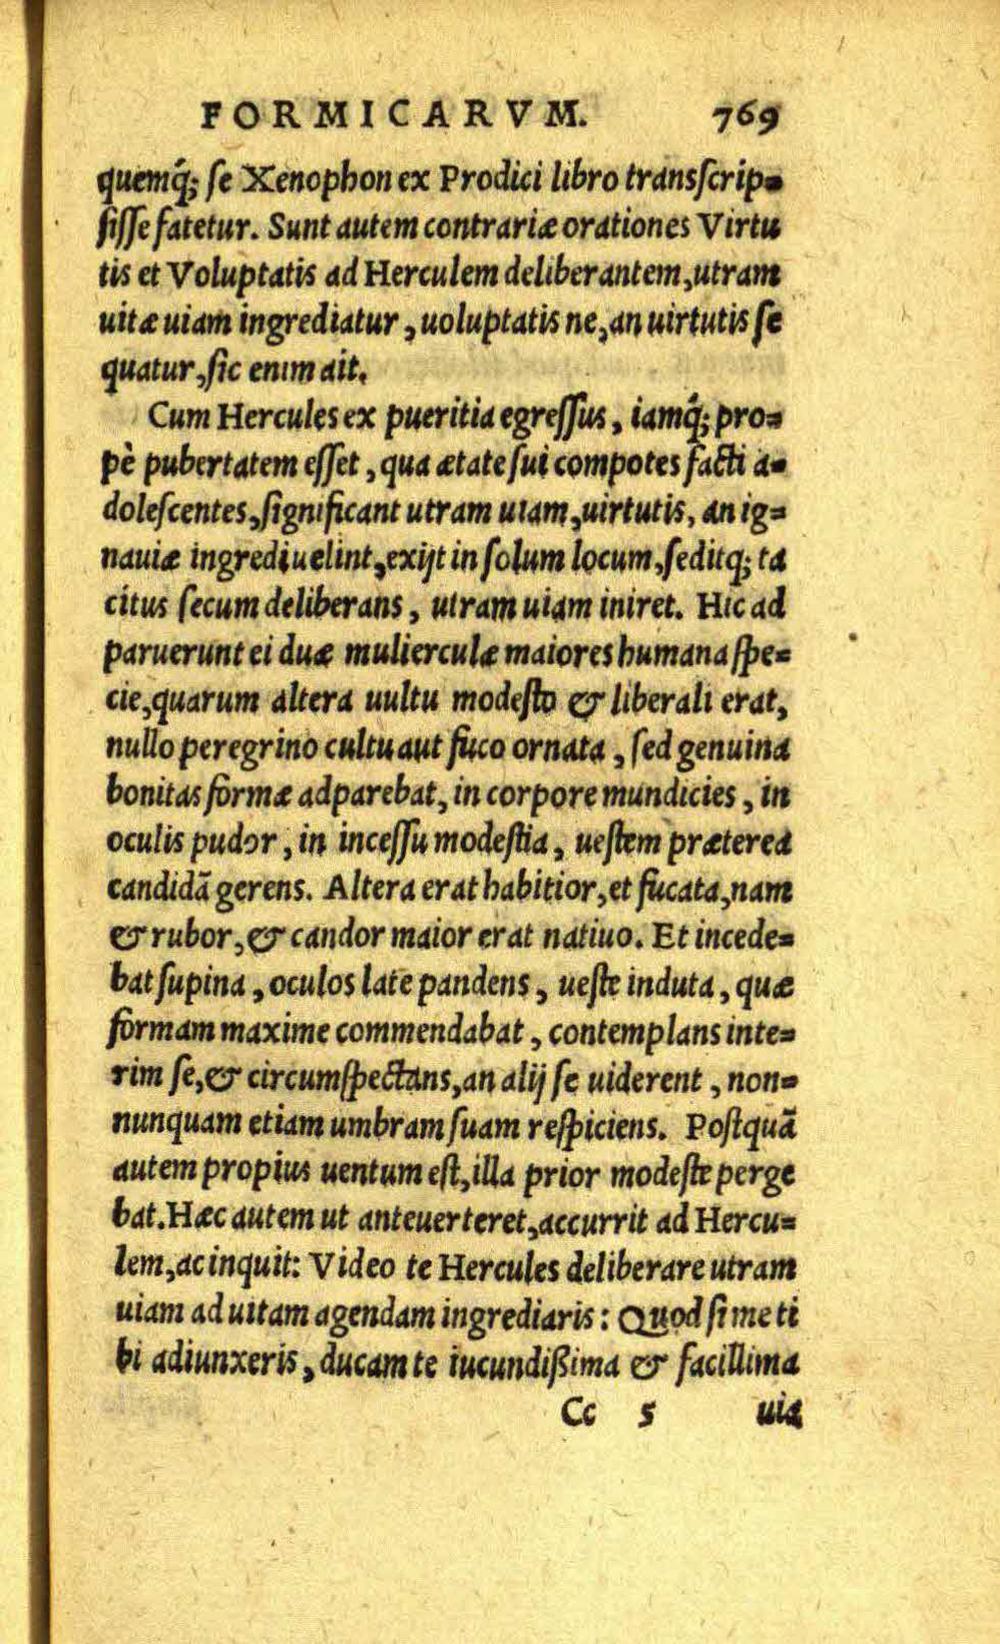 FORMICARVM. 769
quemq́; ſe Xenophon ex Prodici libro tranſſcrip⸗
ſiſſe fatetur. Sunt autem contrariæ orationes Virtu
tis et Voluptatis ad Herculem deliberantem, utram
uitæ uiam ingrediatur, uoluptatis ne, an uirtutis ſe
quatur, ſic enim ait.
Cum Hercules ex pueritia egreſſus, iamq́; pro⸗
pè pubertatem eſſet, qua ætate ſui compotes facti a⸗
doleſcentes, ſignificant utram uiam, uirtutis, an ig⸗
nauiæ ingredi uelint, exijt in ſolum locum, ſeditq; ta
citus ſecum deliberans, utram uiam iniret. Hic ad
paruerunt ei duæ mulierculæ maiores humana ſpe⸗
cie, quarum altera uultu modeſto & liberali erat,
nullo peregrino cultu aut fuco ornata, ſed genuina
bonitas formæ adparebat, in corpore mundicies, in
oculis pudor, in inceſſu modeſtia, ueſtem præterea
candidã gerens. Altera erat habitior, et fucata, nam
& rubor, & candor maior erat natiuo. Et incede⸗
bat ſupina, oculos late pandens, ueſte induta, quæ
formam maxime commendabat, contemplans inte⸗
rim ſe, & circumſpectans, an alij ſe uiderent, non⸗
nunquam etiam umbram ſuam reſpiciens. Poſtquã
autem propius uentum eſt, illa prior modeſte perge
bat. Hæc autem ut anteuerteret, accurrit ad Hercu⸗
lem, ac inquit: Video te Hercules deliberare utram
uiam ad uitam agendam ingrediaris: Quod ſi me ti
bi adiunxeris, ducam te iucundißima & facillima
Cc 5 uia